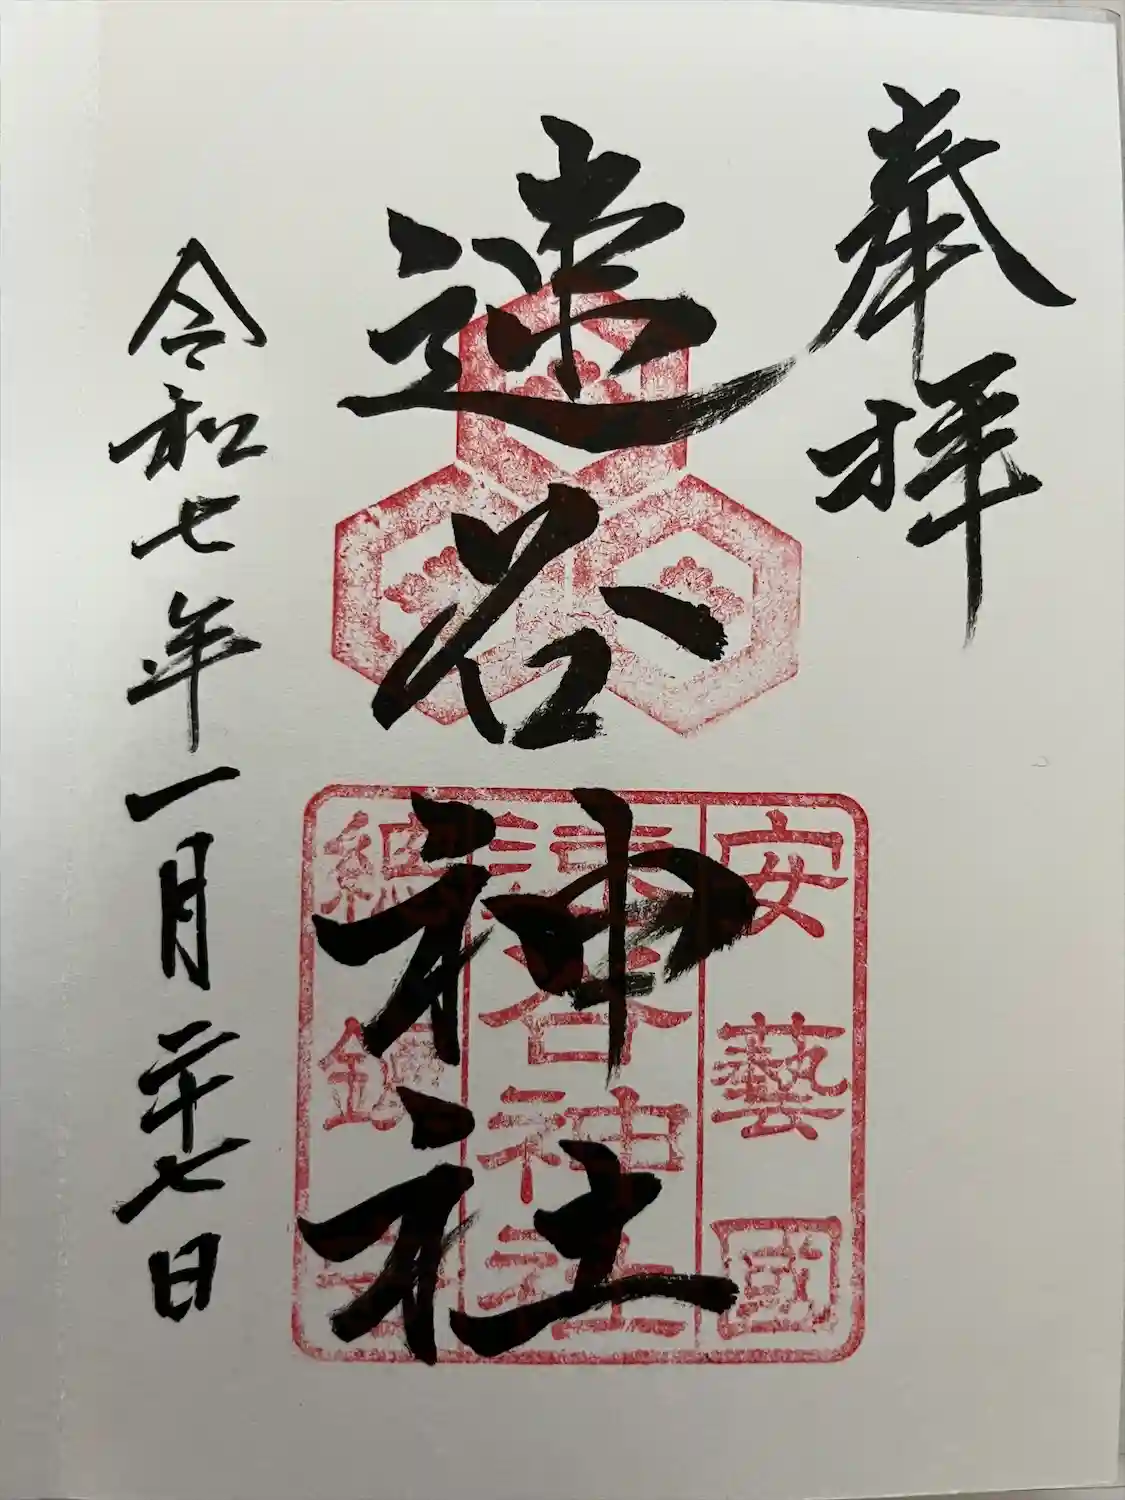 奉拝
速谷神社
安藝國
速谷神社
総鎮守
令和七年一月二十七日